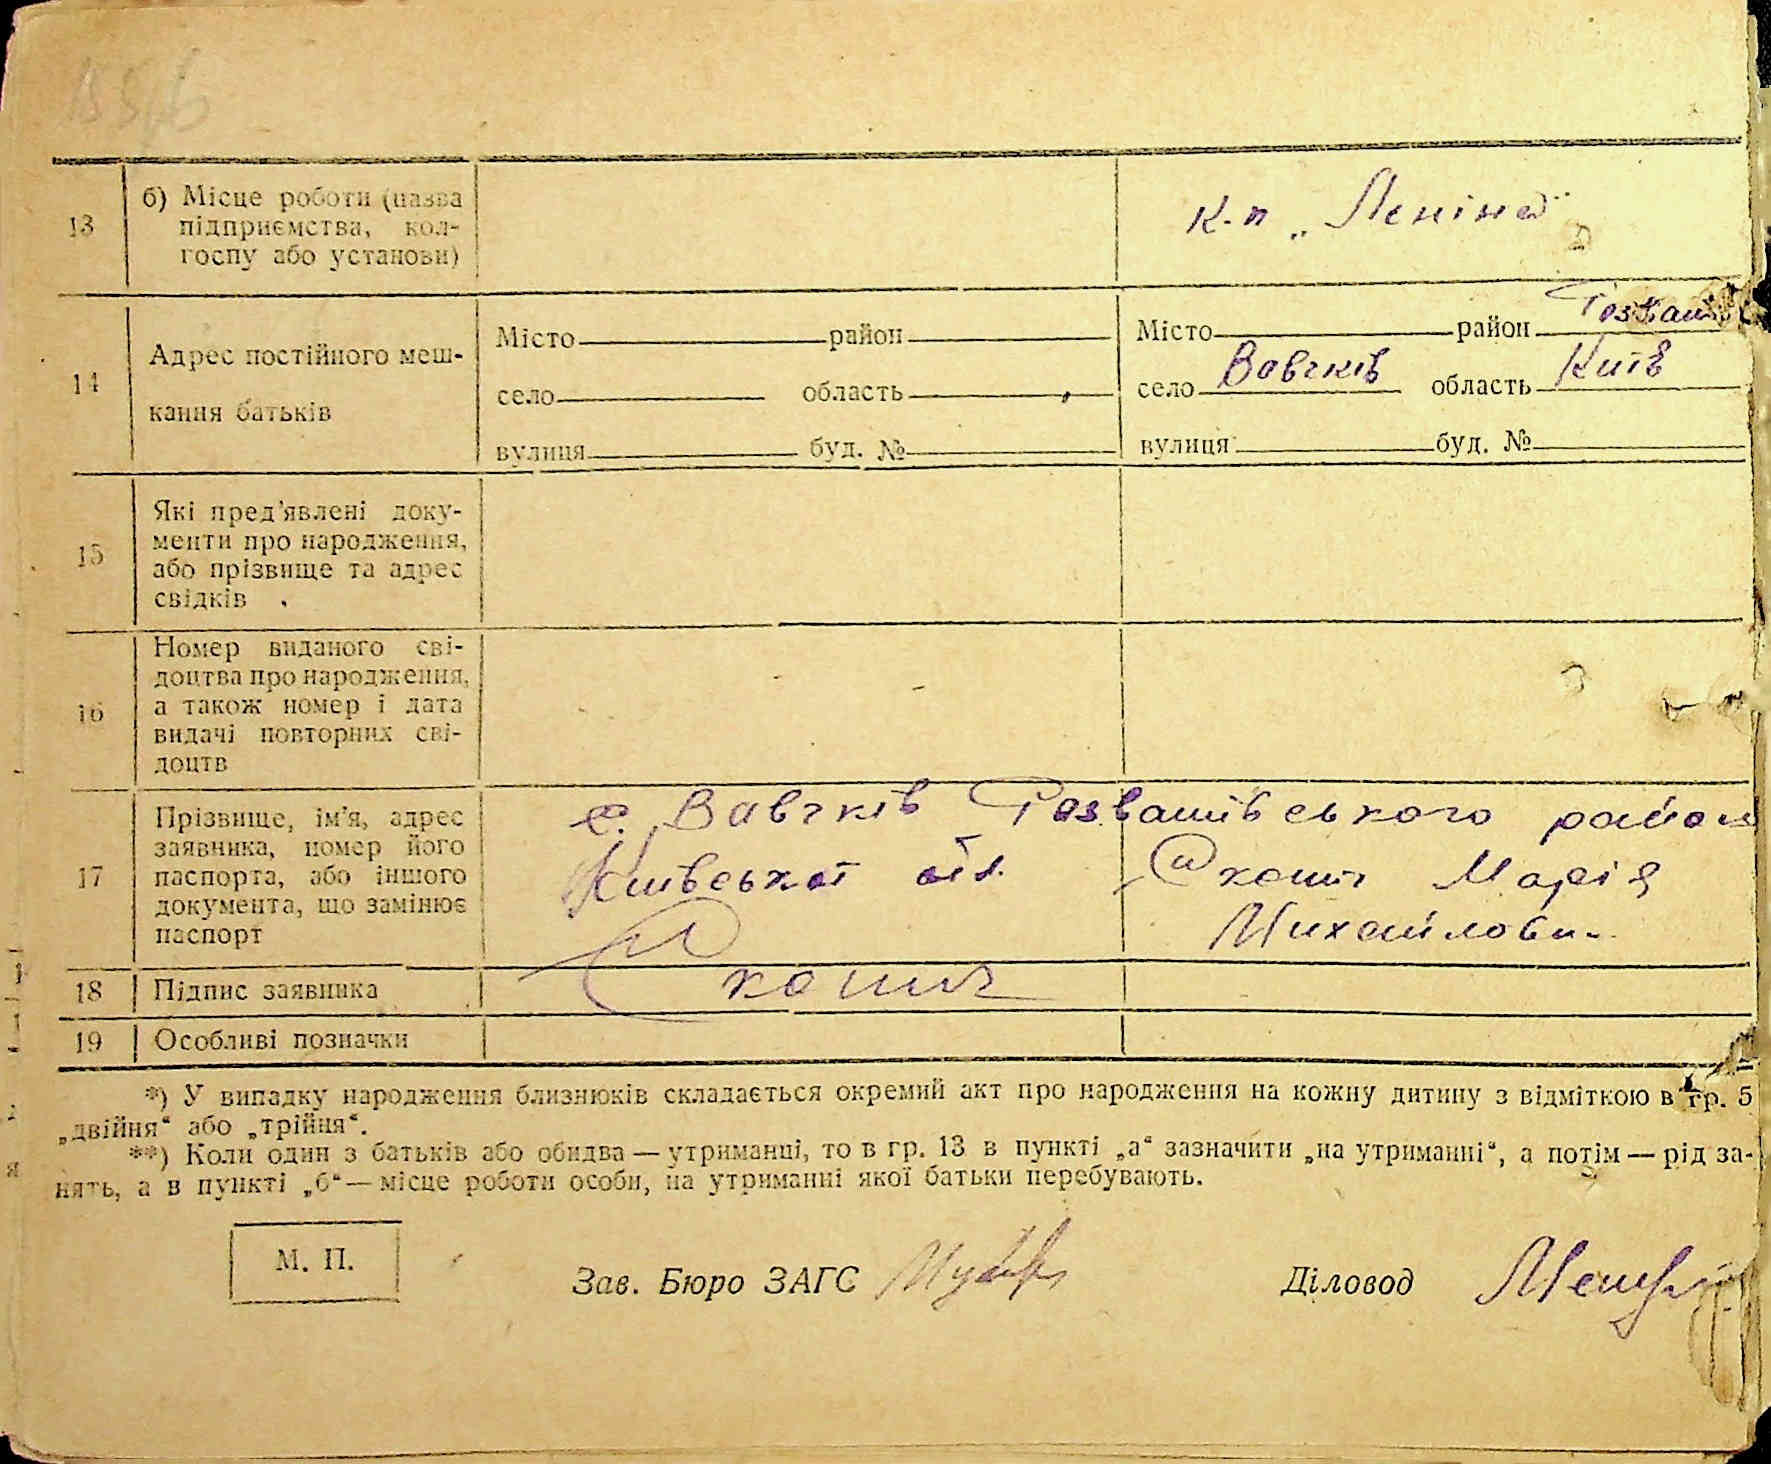 13
б) Місце роботи (назва
підприємства, кол-
госпу або установи)
к-п „Леніна"
14
Адрес постійного меш-
кання батьків
Місто район
село область
вулиця буд. №
Місто район Розваж
село Вовчків область Київ
вулиця буд. №
15
Які пред'явлені доку-
менти про народження,
або прізвище та адрес
свідків
16
Номер виданого сві-
доцтва про народження,
а також номер і дата
видачі повторних сві-
доцтв
17
Прізвище, ім'я, адрес
заявника, номер його
паспорта, або іншого
документа, що замінює
паспорт
с. Вавчків Розважівського район
Київської обл.
Марія
Михайловн
18
Підпис заявника
19
Особливі позначки
*) У випадку народження близнюків складається окремий акт про народження на кожну дитину з відміткою в гр. 5
„двійня“ або „трійня“.
**) Коли один з батьків або обидва — утриманці, то в гр. 13 в пункті „а“ зазначити „на утриманні“, а потім — рід за-
нять, а в пункті „б“ — місце роботи особи, на утриманні якої батьки перебувають.
М. П.
Зав. Бюро ЗАГС
Діловод